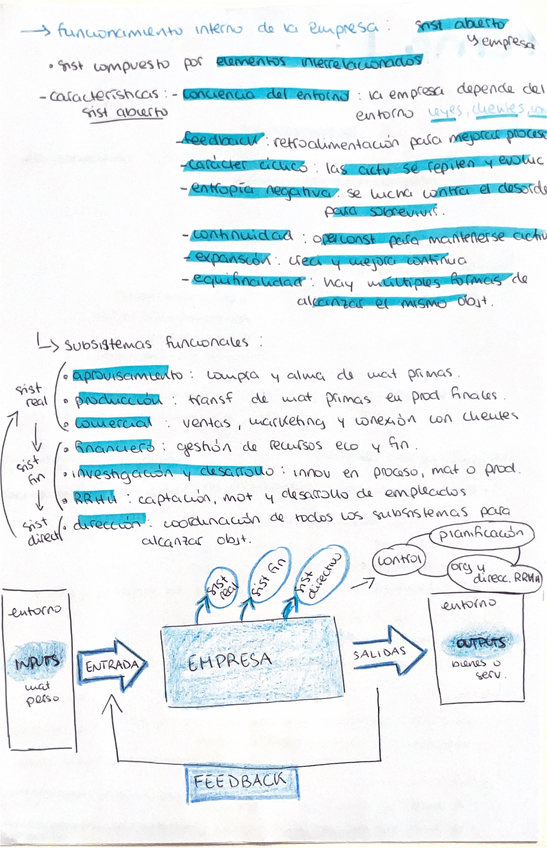 → funcionamiento interno de la empresa : sist abierto
↳ empresa
• sist compuesto por elementos interrelacionados
- características : - conciencia del entorno : la empresa depende del
sist abierto entorno leyes, clientes,
- feedback : retroalimentación para mejorar proces
- carácter cíclico : las activ se repiten y evoluc
- entropía negativa : se lucha contra el desorde
para sobrevivir.
- continuidad : oper const para mantenerse activ
- expansión : creci y mejora continua
- equifinalidad : hay múltiples formas de
alcanzar el mismo obst.
↳ subsistemas funcionales :
• aprovisamiento : compra y alma de mat primas.
sist real
• producción : transf de mat primas en prod finales.
• comercial : ventas, marketing y conexión con clientes
• financiero : gestión de recursos eco y fin.
sist fin
• investigación y desarrollo : innov en proceso, mat o prod.
• RRHH : captación, mot y desarrollo de empleados
sist direct
• dirección : coordinación de todos los subsistemas para
alcanzar obst.
planificación
control
org y direcc. RRHH
sist real
sist fin
sist directivo
entorno
INPUTS
mat
perso
ENTRADA
EMPRESA
SALIDAS
entorno
OUTPUTS
bienes o
serv.
FEEDBACK